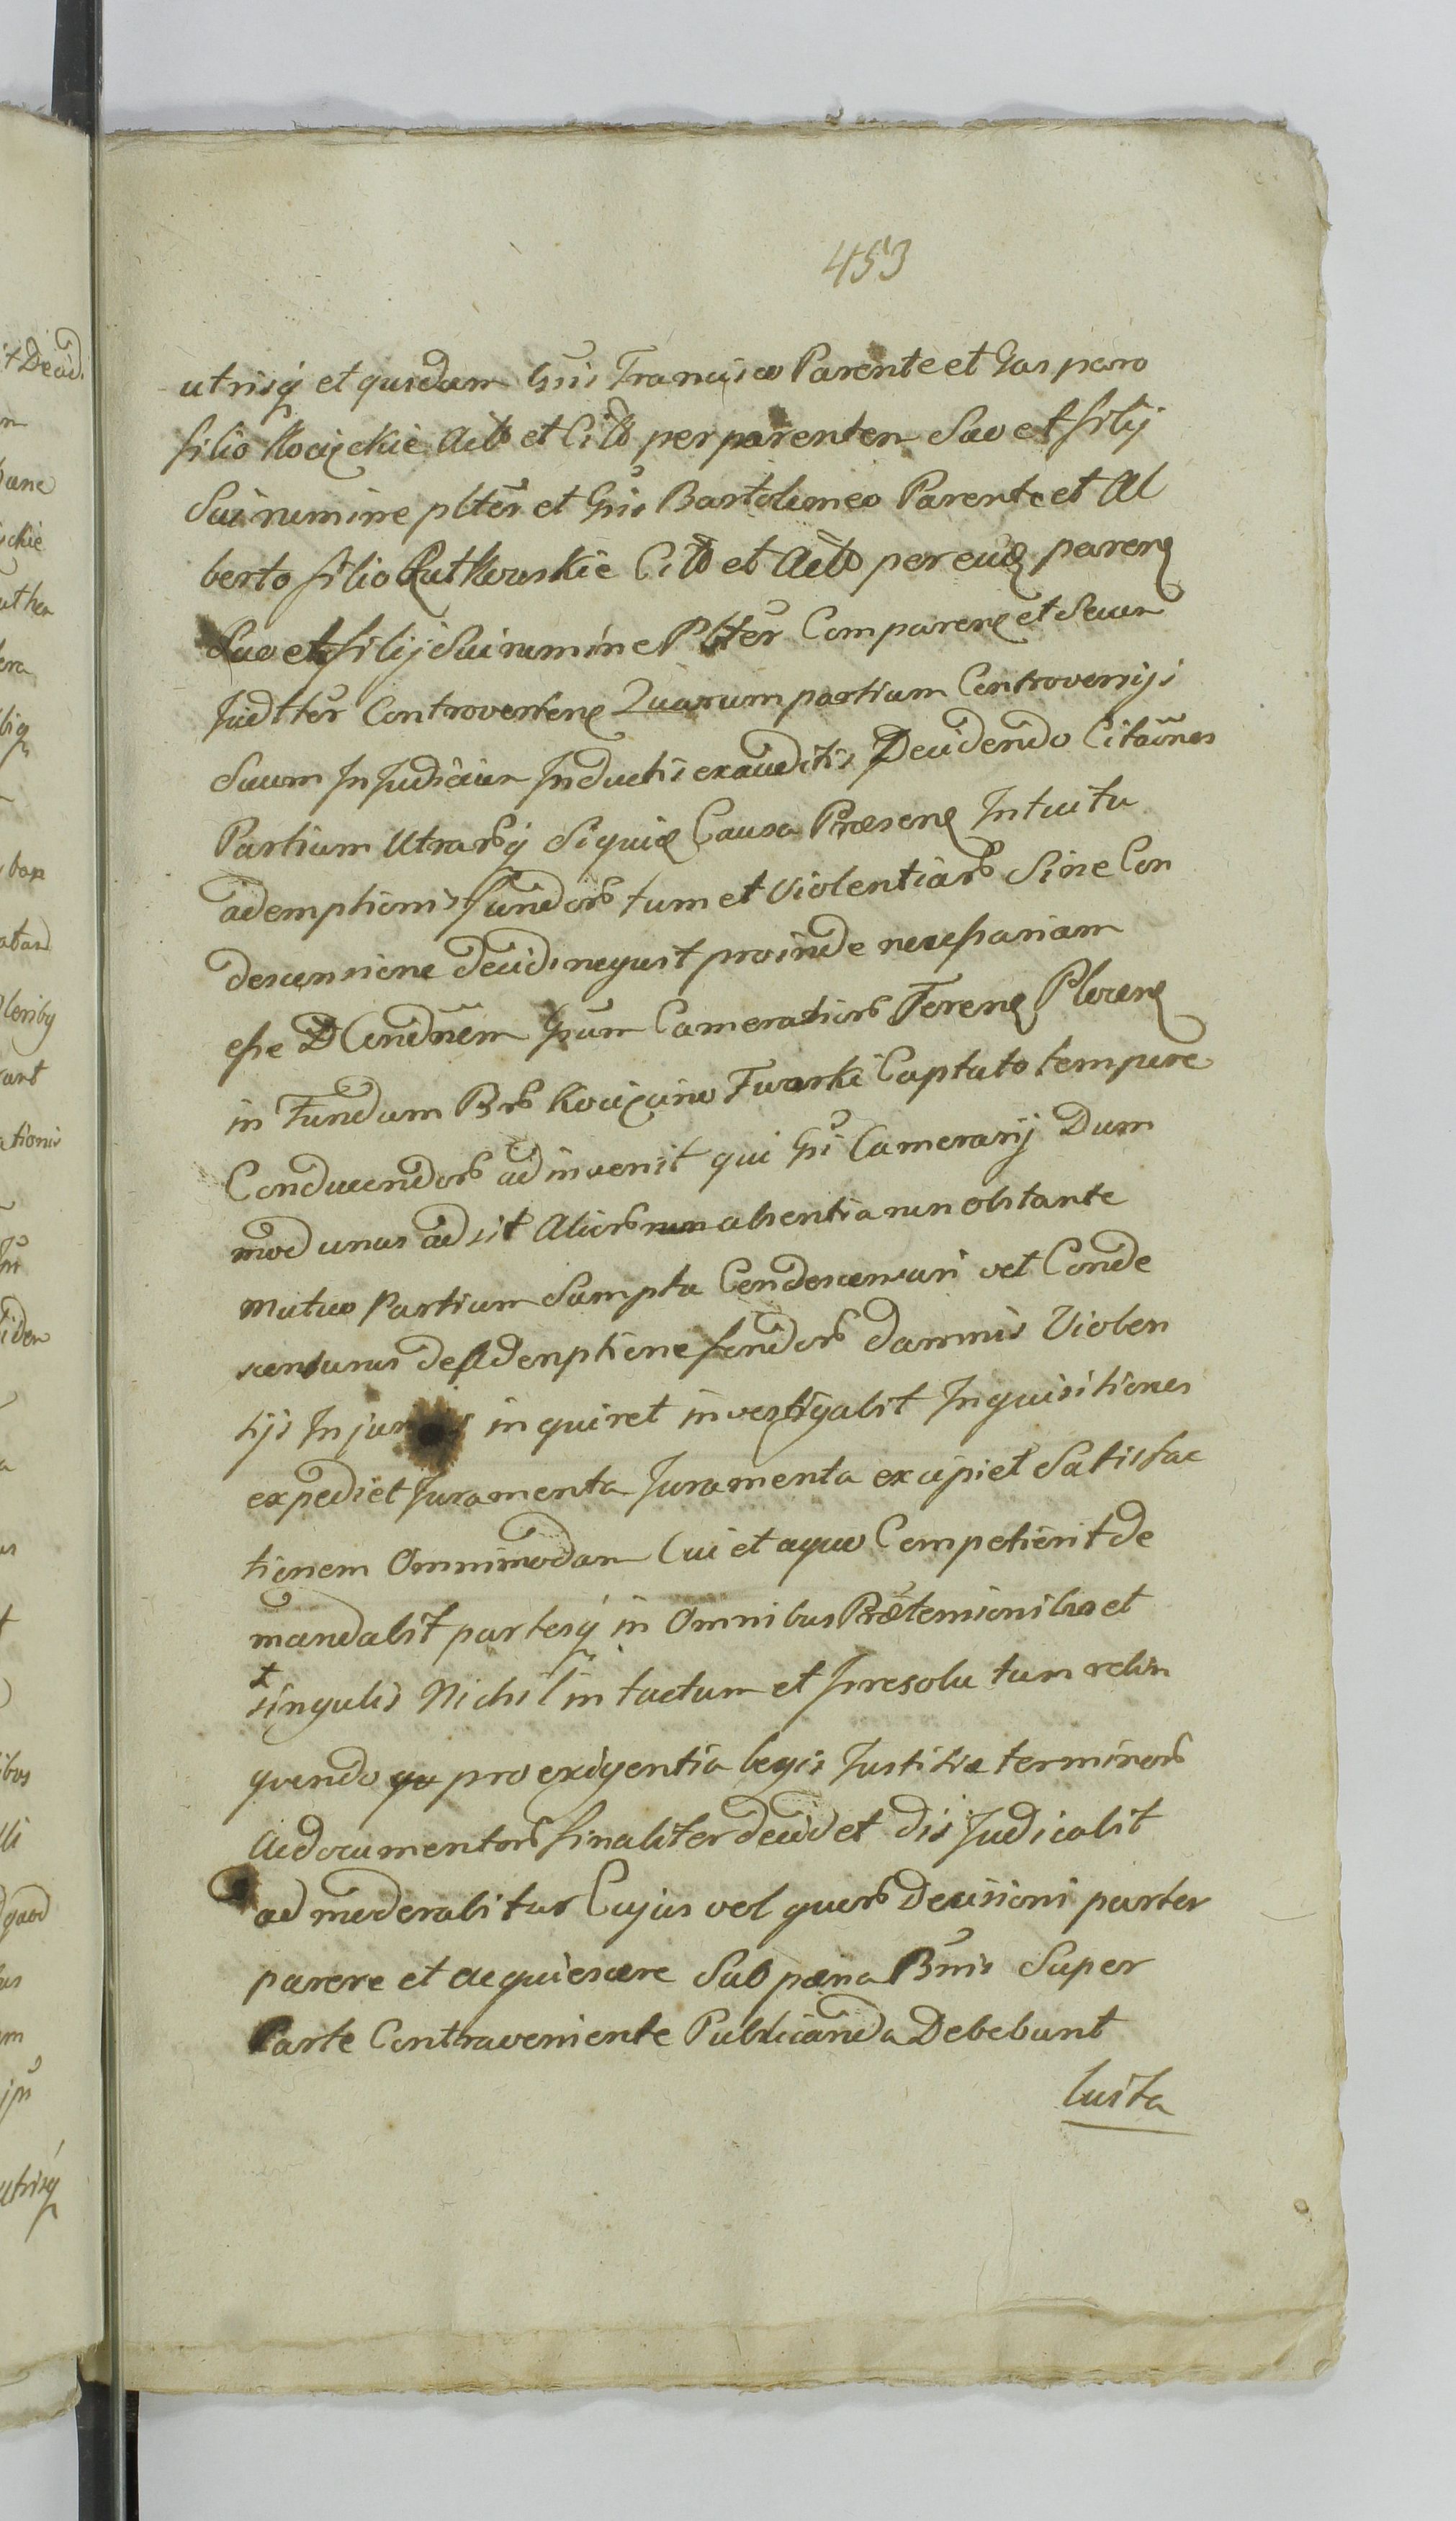 453
utrisq et quidem Gnis Francisco Parente et Gasparo
filio Kocięckie Acto et Cito per parentem Suo et filij
Sui nomine plter et Gnis Bartolomeo Parente et Al
berto filio Rutkowskie Cito et Acto per eund paren
Suo et filij Sui nomine Plter Comparen et Secum
Judtter Controverten Quarum partium Controversijs
Suum In Judicium Inductis exauditis Decidendo Citaōnes
Partium Utrarq Siquid Causa Praesens Intuitu
ademptionis fundor tum et Violentiar Sine Con
descensione decidi nequit proinde necessariam
esse Condnem Gnum Camerarior Terren Plocen
in Fundum Bror Kocięcino Twarki Captato tempore
Conducendor adinvenit qui Gni Camerarij Dum
modo unus adsit Alior absentia non obstante
Mutuo Partium Sumptu Condescensuri vel Conde
scensurus de Ademptione fundor damnis Violen
tijs Injurijs inquiret investigabit Inquisitiones
expediet Juramenta Juramenta excipiet Satisfac
tionem Omnimodam Cui et a quo Competierit de
mandabit partesq in Omnibus Praetensionibus et
singulis Nichil intactum et Irresolutum relin
quendo pro exigentia legis Justitiae terminor
Ac documentor finaliter decidet disJudicabit
ad moderabitur Cujus vel quor Decisioni partes
parere et acquiescere Sub paena Bnis Super
Parte Contraveniente Publicanda Debebunt
luita